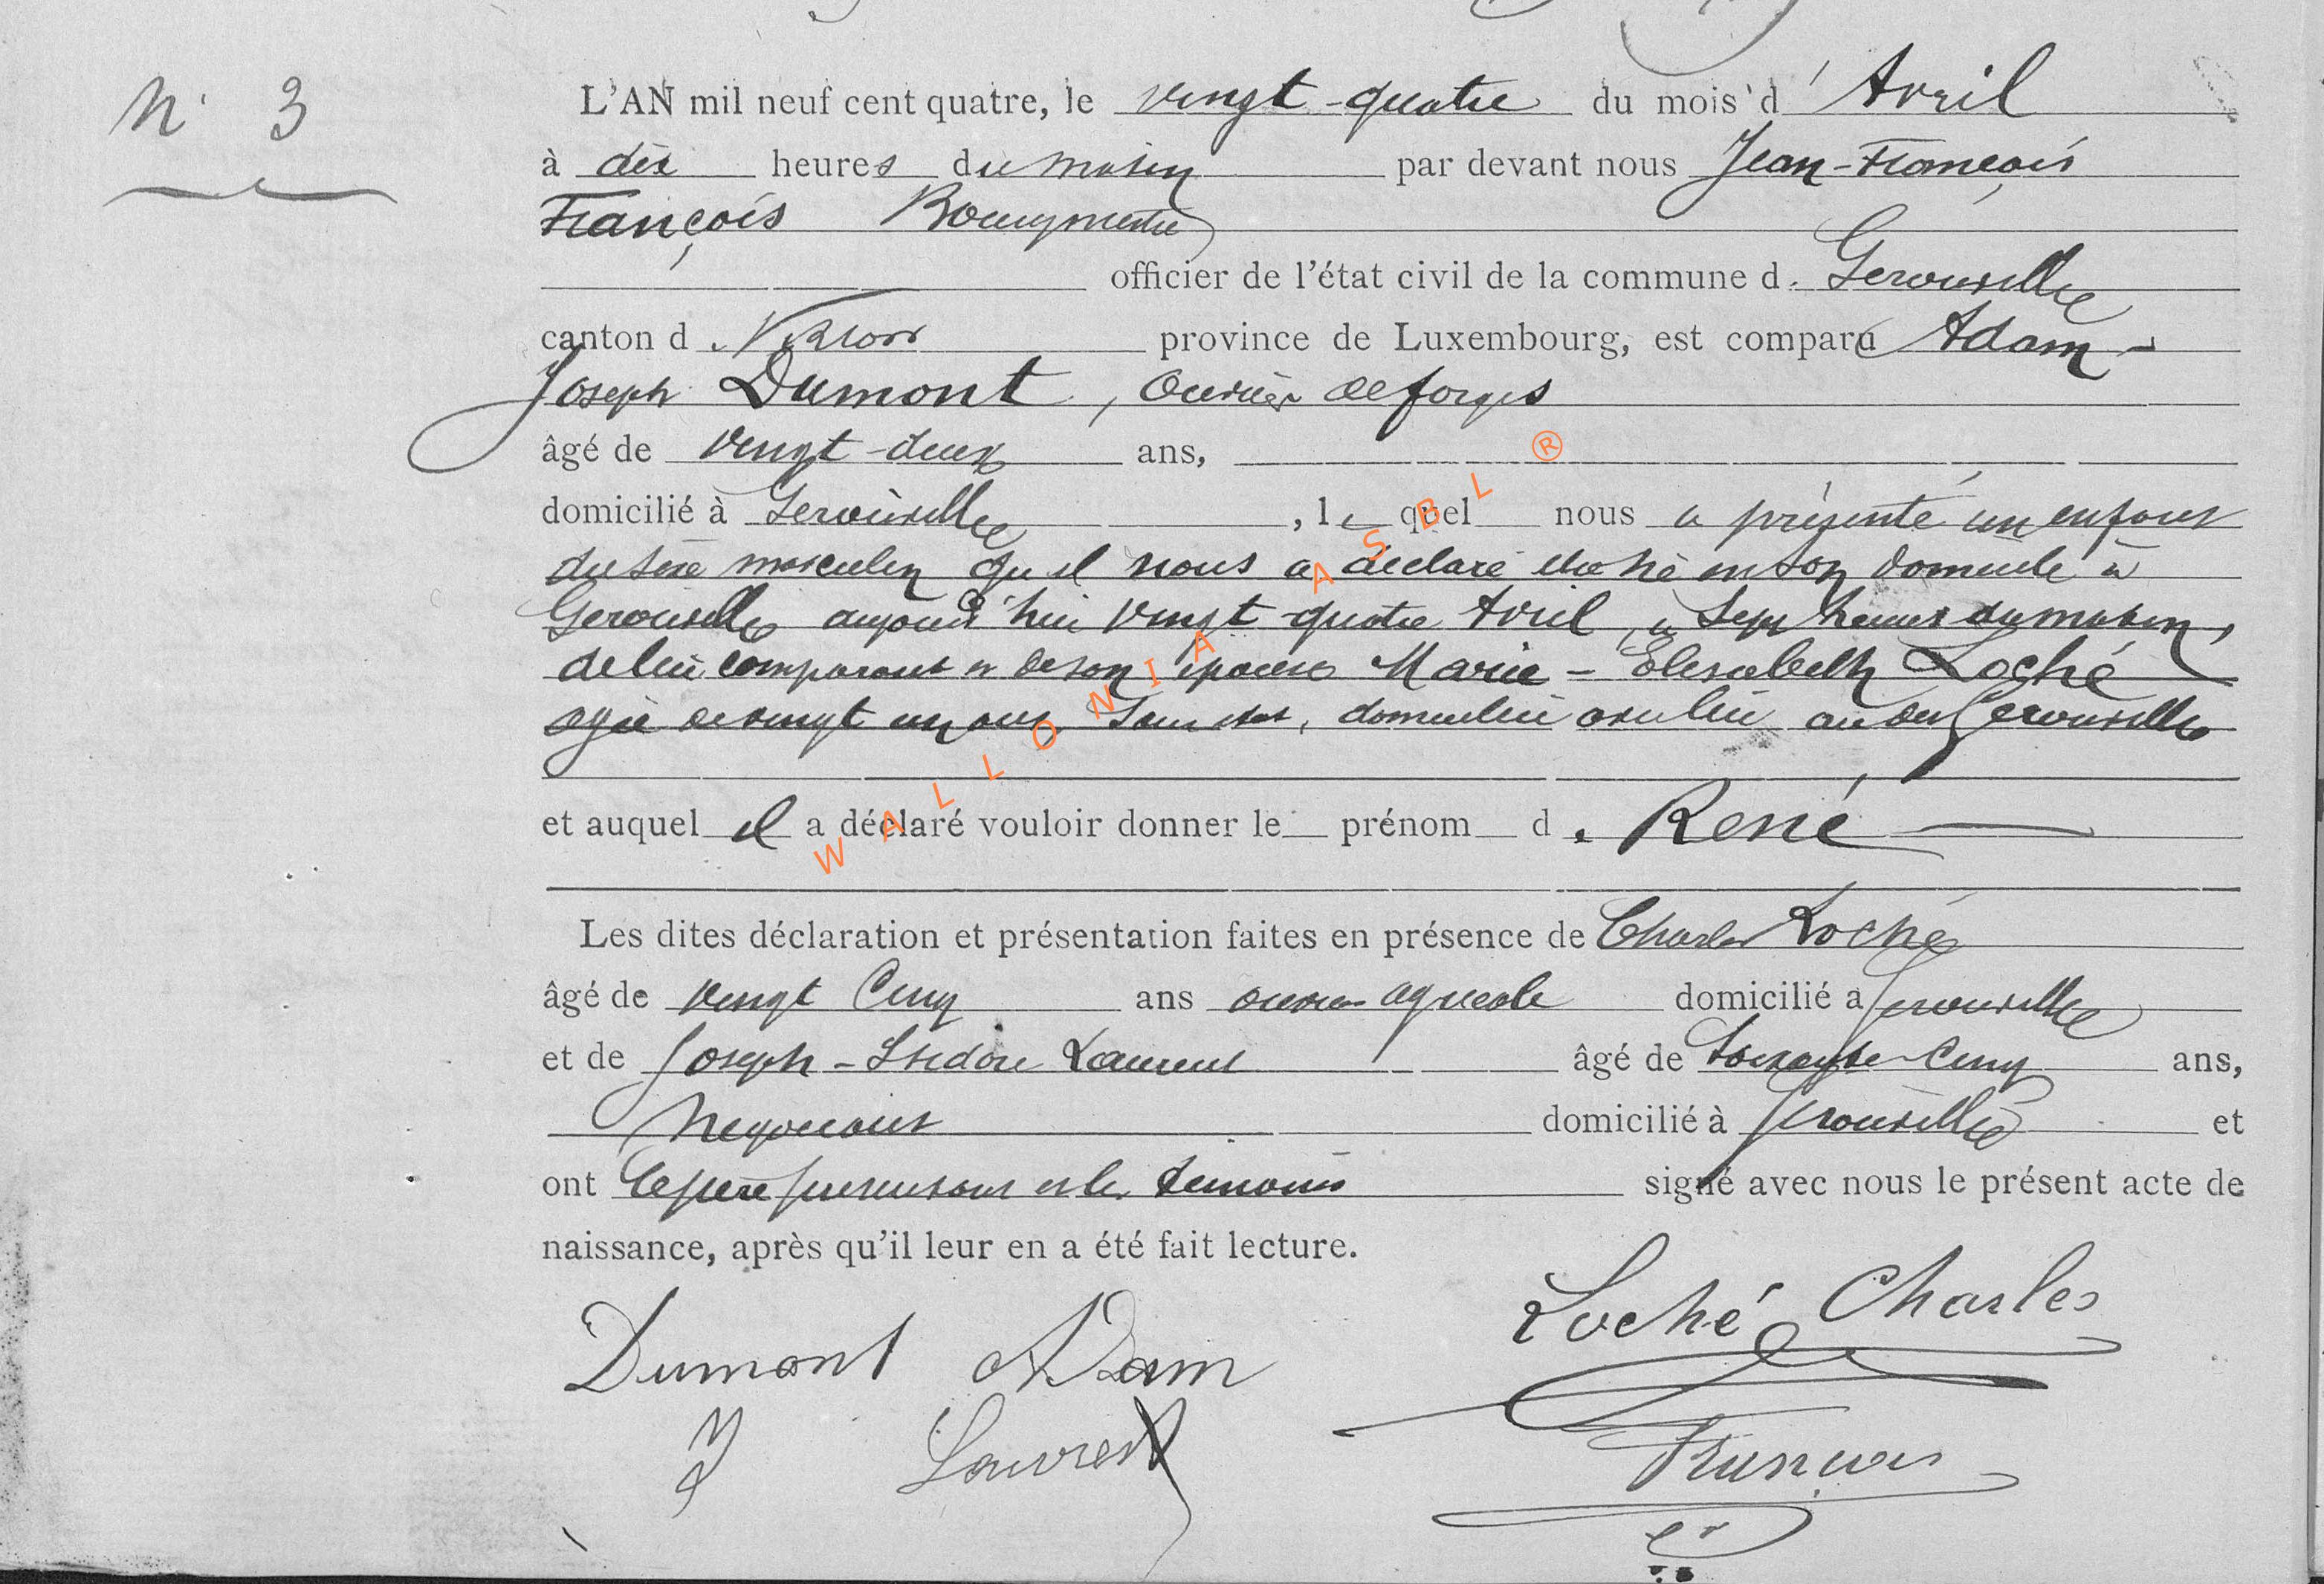 N° 3
L'AN mil neuf cent quatre, le vingt-quatre du mois d'Avril
à dix heures du matin par devant nous Jean-François
François Bourgmestre
officier de l'état civil de la commune de Gerouville
canton de Virton province de Luxembourg, est comparu Adam-
Joseph Dumont, ouvrier de forges
âgé de vingt-deux ans,
domicilié à Gerouville, lequel nous a présenté un enfant
du sexe masculin qu'il nous a déclaré être né en son domicile à
Gerouville aujourd'hui vingt-quatre Avril à sept heures du matin,
de lui comparant et de son épouse Marie-Elisabeth Loché
agée de vingt un ans, sans état, domiciliée avec lui au dit Gerouville
et auquel il a déclaré vouloir donner le prénom de René
Les dites déclaration et présentation faites en présence de Charles Loché
âgé de vingt cinq ans ouvrier agricole domicilié à Gerouville
et de Joseph-Isidore Laurent âgé de soixante-cinq ans,
Négociant domicilié à Gerouville et
ont le père présentant et les témoins signé avec nous le présent acte de
naissance, après qu'il leur en a été fait lecture.
Loché Charles
Dumont Adam
J Laurent
François
WALLONIA ASBL ®